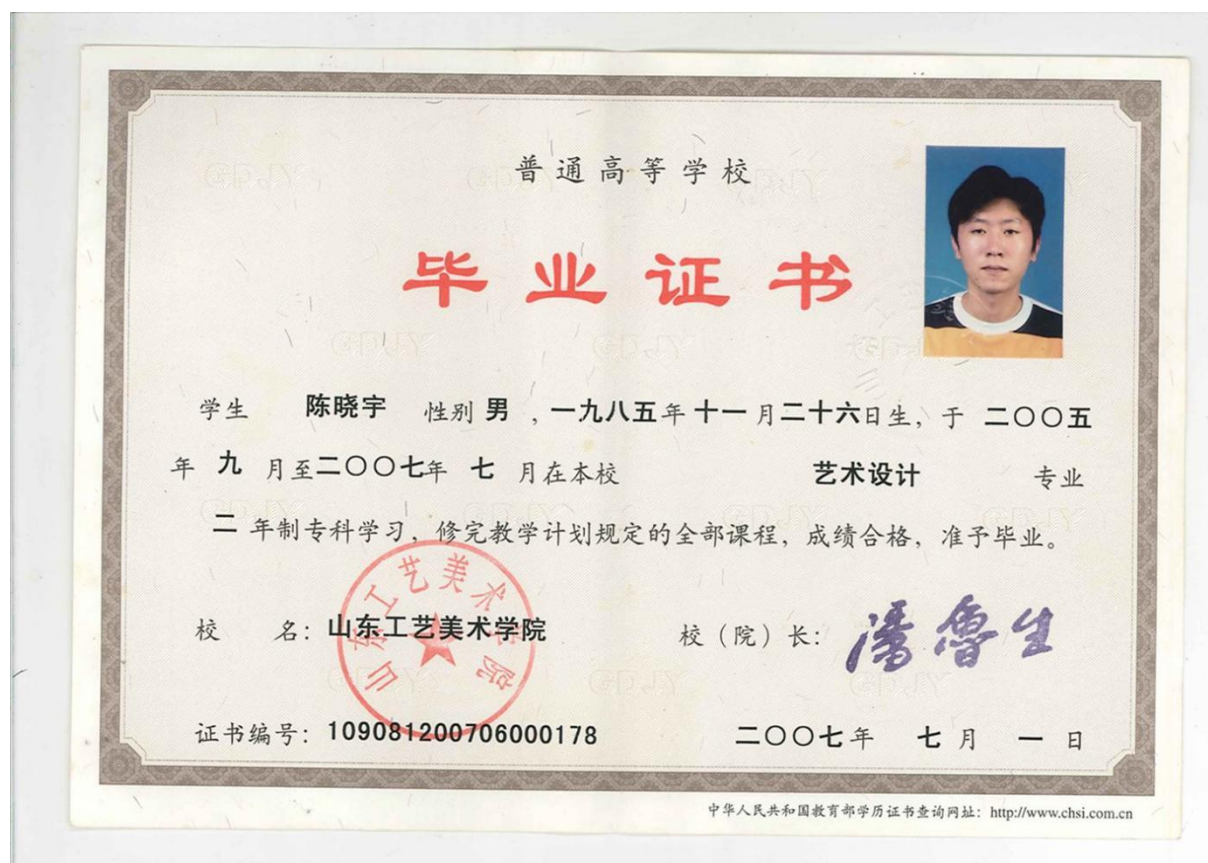 普通高等学校
毕业证书
学生 陈晓宇 性别 男 , 一九八五年十一月二十六日生, 于 二〇〇五
年 九 月至二〇〇七年 七 月在本校 艺术设计 专业
二 年制专科学习, 修完教学计划规定的全部课程, 成绩合格, 准予毕业。
山东工艺美术学院
校 名: 山东工艺美术学院 校(院)长: 潘鲁生
证书编号: 109081200706000178 二〇〇七年 七 月 一 日
中华人民共和国教育部学历证书查询网址: http://www.chsi.com.cn